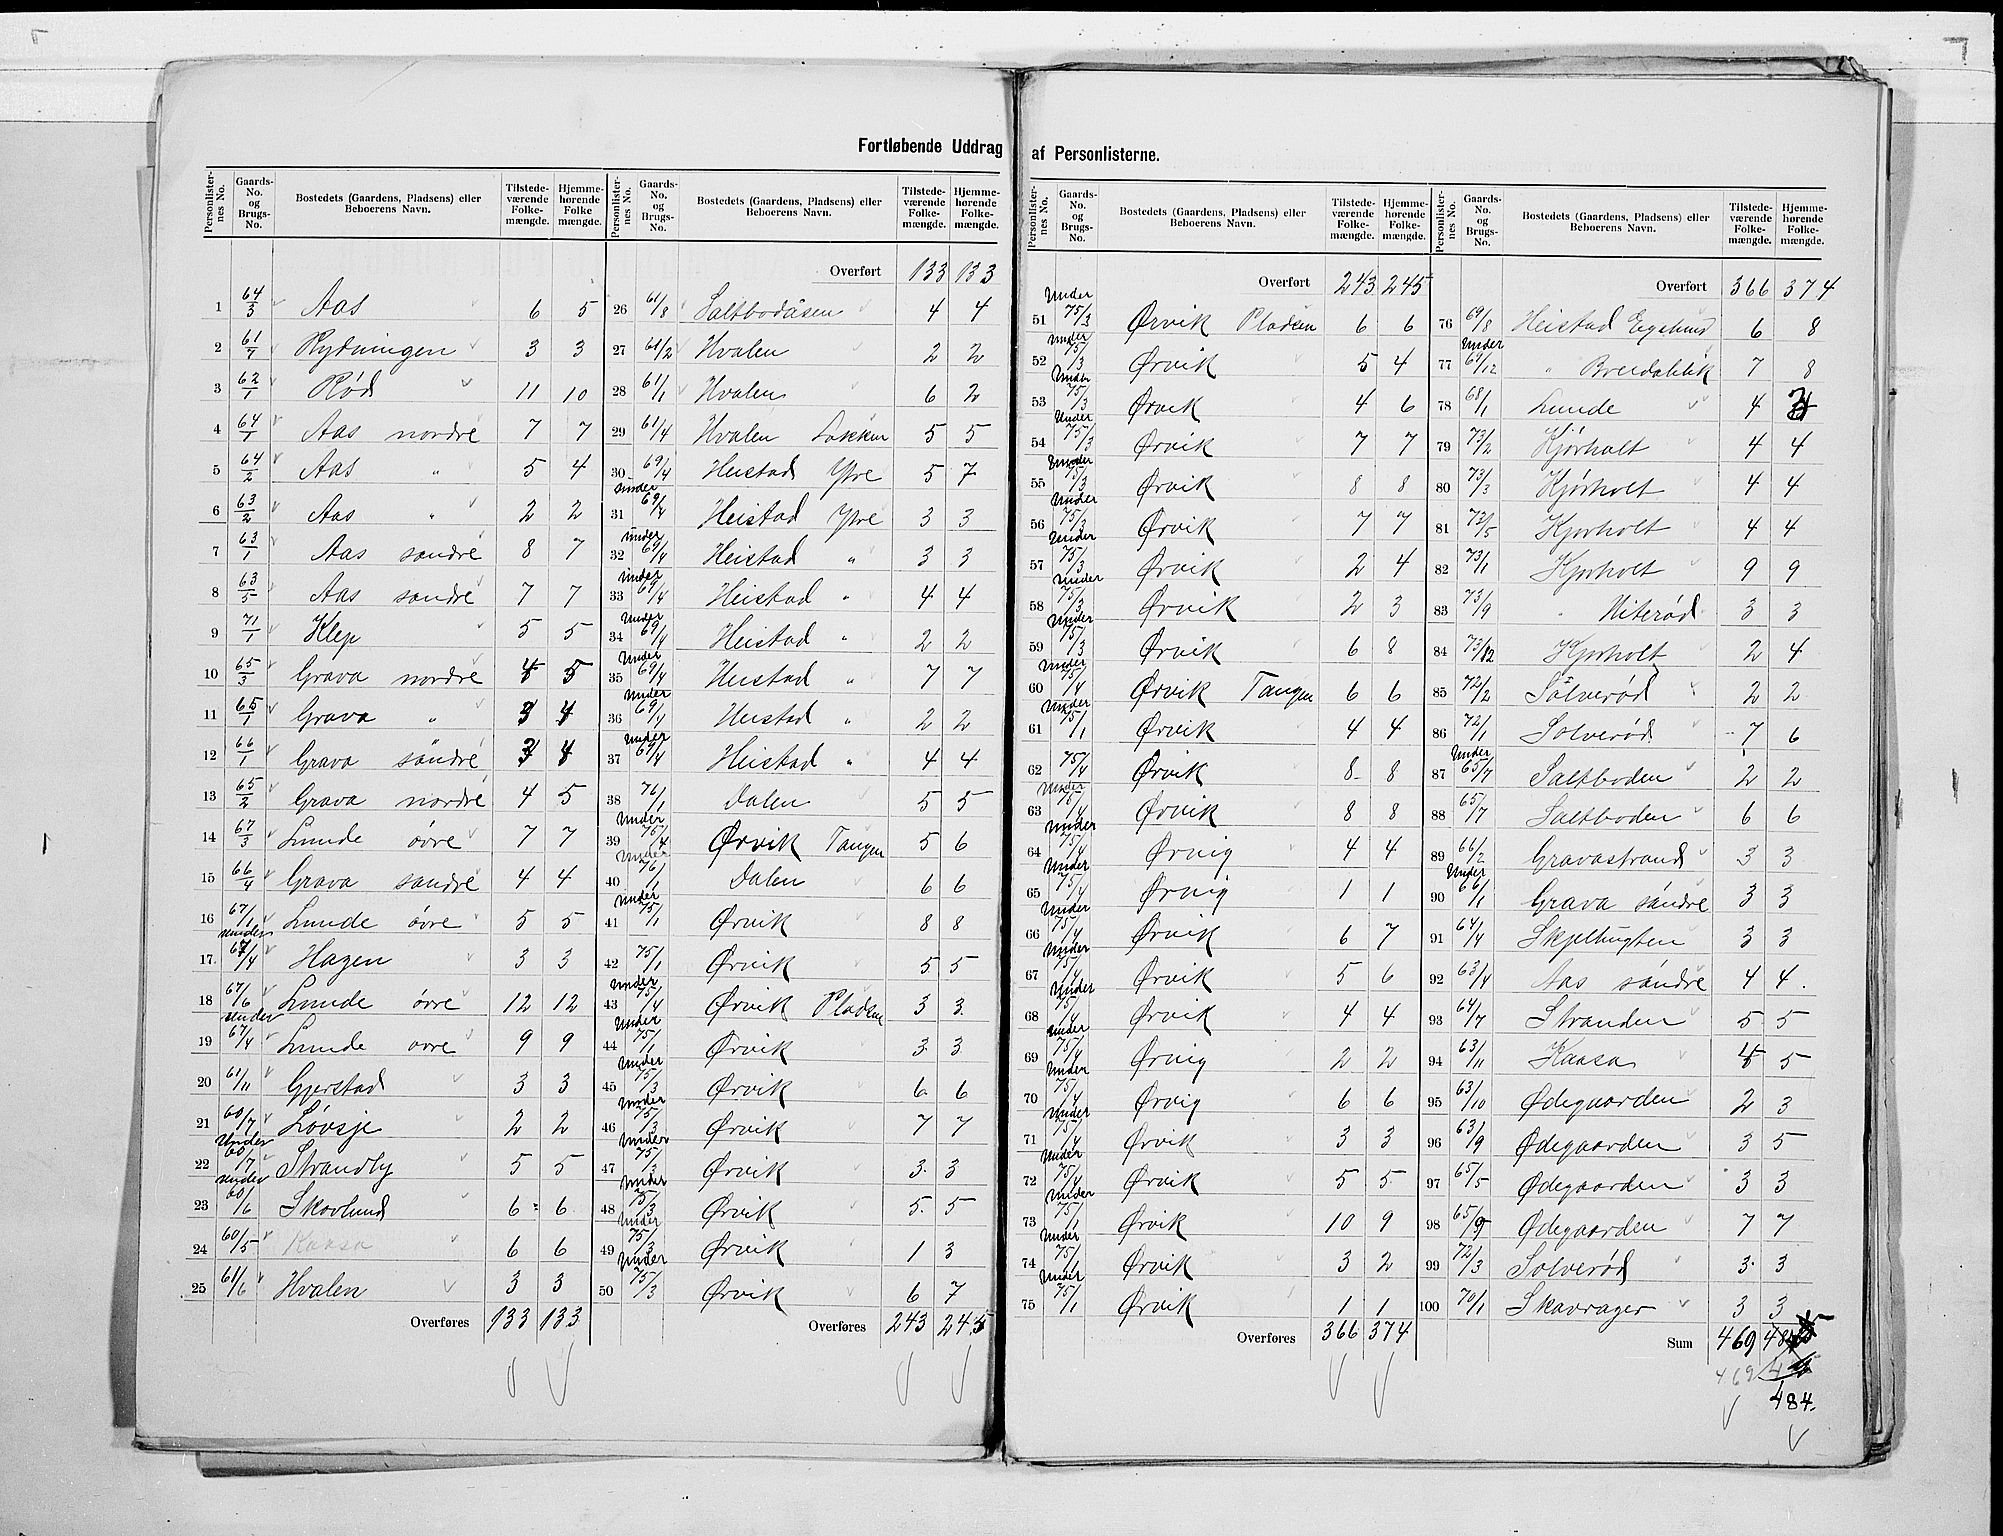 Fortløbende Uddrag af Personlisterne.
Personlister-nes No. Gaards-No. og Brugs-No. Bostedets (Gaardens, Pladsens) eller Beboerens Navn. Tilstede-værende Folke-mængde. Hjemme-hørende Folke mængde.
1 64/3 Aas 6 5
2 61/7 Rydningen 3 3
3 62/1 Rød 11 10
4 64/1 Aas nordre 7 7
5 64/2 Aas " 5 4
6 63/2 Aas " 2 2
7 63/1 Aas søndre 8 7
8 63/5 Aas søndre 7 7
9 71/1 Klep 5 5
10 65/3 Grava nordre 4 5
11 65/1 Grava " 3 4
12 66/1 Grava søndre 3 4
13 65/2 Grava nordre 4 5
14 67/3 Lunde øvre 7 7
15 66/4 Grava søndre 4 4
16 67/1 Lunde øvre 5 5
17 under 67/4 Hagen 3 3
18 67/6 Lunde øvre 12 12
19 under 67/4 Lunde øvre 9 9
20 61/11 Gjerstad 3 3
21 60/7 Løvsje 2 2
22 Under 60/7 Strandby 5 5
23 under 60/6 Skovlund 6 6
24 60/5 Kaasa 6 6
25 61/6 Hvalen 3 3
Overføres 133 133
Personlister-nes No. Gaards-No. og Brugs-No. Bostedets (Gaardens, Pladsens) eller Beboerens Navn. Tilstede-værende Folke-mængde. Hjemme-hørende Folke-mængde.
Overført 133 133
26 61/8 Saltbodåsen 4 4
27 61/2 Hvalen 2 2
28 61/1 Hvalen 6 2
29 61/4 Hvalen Løkken 5 5
30 69/4 Heistad Yvre 5 7
31 under 69/4 Heistad Yvre 3 3
32 under 69/4 Heistad " 3 3
33 under 69/4 Heistad " 4 4
34 Under 69/4 Heistad " 2 2
35 Under 69/4 Heistad " 7 7
36 Under 69/4 Heistad " 2 2
37 Under 69/4 Heistad " 4 4
38 76/1 Dalen 5 5
39 Under 75/4 Ørvik Tangen 5 6
40 Under 76/1 Dalen 6 6
41 Under 75/1 Ørvik 8 8
42 75/1 Ørvik 5 5
43 Under 75/4 Ørvik Pladsen 3 3
44 Under 75/1 Ørvik 3 3
45 Under 75/3 Ørvik 6 6
46 Under 75/3 Ørvik 7 7
47 Under 75/3 Ørvik 3 3
48 Under 75/3 Ørvik 5 5
49 Under 75/3 Ørvik 1 3
50 Under 75/3 Ørvik 6 7
Overføres 243 245
Personlister-nes No. Gaards-No. og Brugs-No. Bostedets (Gaardens, Pladsens) eller Beboerens Navn. Tilstede-værende Folke-mængde. Hjemme-hørende Folke-mængde.
Overført 243 245
51 Under 75/3 Ørvik Pladsen 6 6
52 Under 75/3 Ørvik 5 4
53 Under 75/3 Ørvik 4 6
54 Under 75/3 Ørvik 7 7
55 Under 75/3 Ørvik 8 8
56 Under 75/3 Ørvik 7 7
57 Under 75/3 Ørvik 2 4
58 Under 75/3 Ørvik 2 3
59 Under 75/3 Ørvik 6 8
60 Under 75/4 Ørvik Tangen 6 6
61 Under 75/1 Ørvik 4 4
62 75/4 Ørvik 8 8
63 Under 75/4 Ørvik 8 8
64 Under 75/4 Ørvig 4 4
65 Under 75/4 Ørvig 1 1
66 Under 75/4 Ørvik 6 7
67 Under 75/4 Ørvik 5 6
68 Under 75/4 Ørvik 4 4
69 Under 75/4 Ørvig 2 2
70 Under 75/4 Ørvig 6 6
71 Under 75/4 Ørvik 3 3
72 Under 75/4 Ørvik 5 5
73 Under 75/1 Ørvik 10 9
74 Under 75/1 Ørvik 3 2
75 Under 75/1 Ørvik 1 1
Overføres 366 374
Personlister-nes No. Gaards-No. og Brugs-No. Bostedets (Gaardens, Pladsens) eller Beboerens Navn. Tilstede-værende Folke-mængde. Hjemme-hørende Folke-mængde.
Overført 366 374
76 69/8 Heistad 6 8
77 Under 69/12 " 7 8
78 68/1 Lunde 4
79 73/2 Kjørholt 4 4
80 73/3 Kjørholt 4 4
81 72/5 Kjørholt 4 4
82 73/1 Kjørholt 9 9
83 73/9 " Niterød 3 3
84 73/12 Kjørholt 2 4
85 72/2 Solverød 2 2
86 72/1 Solverød 7 6
87 Under 65/7 Saltboden 2 2
88 65/7 Saltboden 6 6
89 66/2 Gravastrand 3 3
90 Under 66/1 Grava søndre 3 3
91 64/4 Skjelbugten 3 3
92 63/4 Aas søndre 4 4
93 64/7 Stranden 5 5
94 63/11 Kaasa 4 5
95 63/10 Ødegaarden 2 3
96 63/9 Ødegaarden 3 5
97 65/5 Ødegaarden 3 3
98 65/9 Ødegaarden 7 7
99 72/3 Solverød 3 3
100 70/1 Skavrager 3 3
Sum 469
469
484.